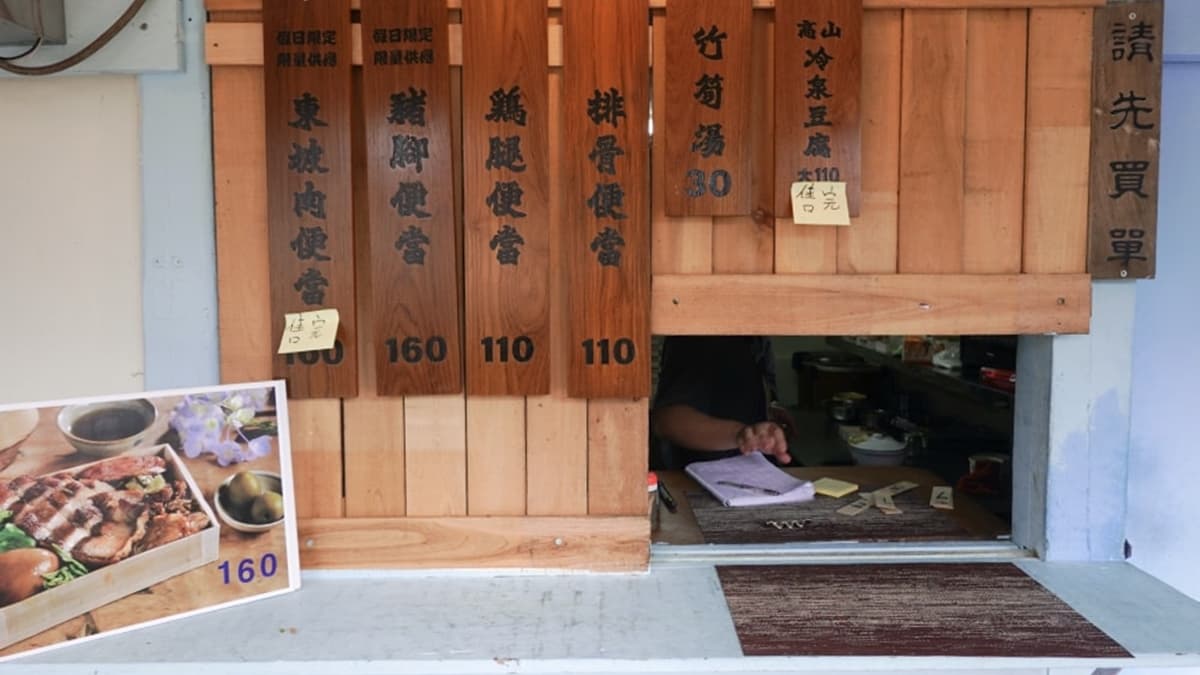 假日限定
限量供應
東坡肉便當
160
售完
假日限定
限量供應
豬腳便當
160
鷄腿便當
110
排骨便當
110
竹筍湯
30
高山
冷泉豆腐
大110
售完
請先買單
160